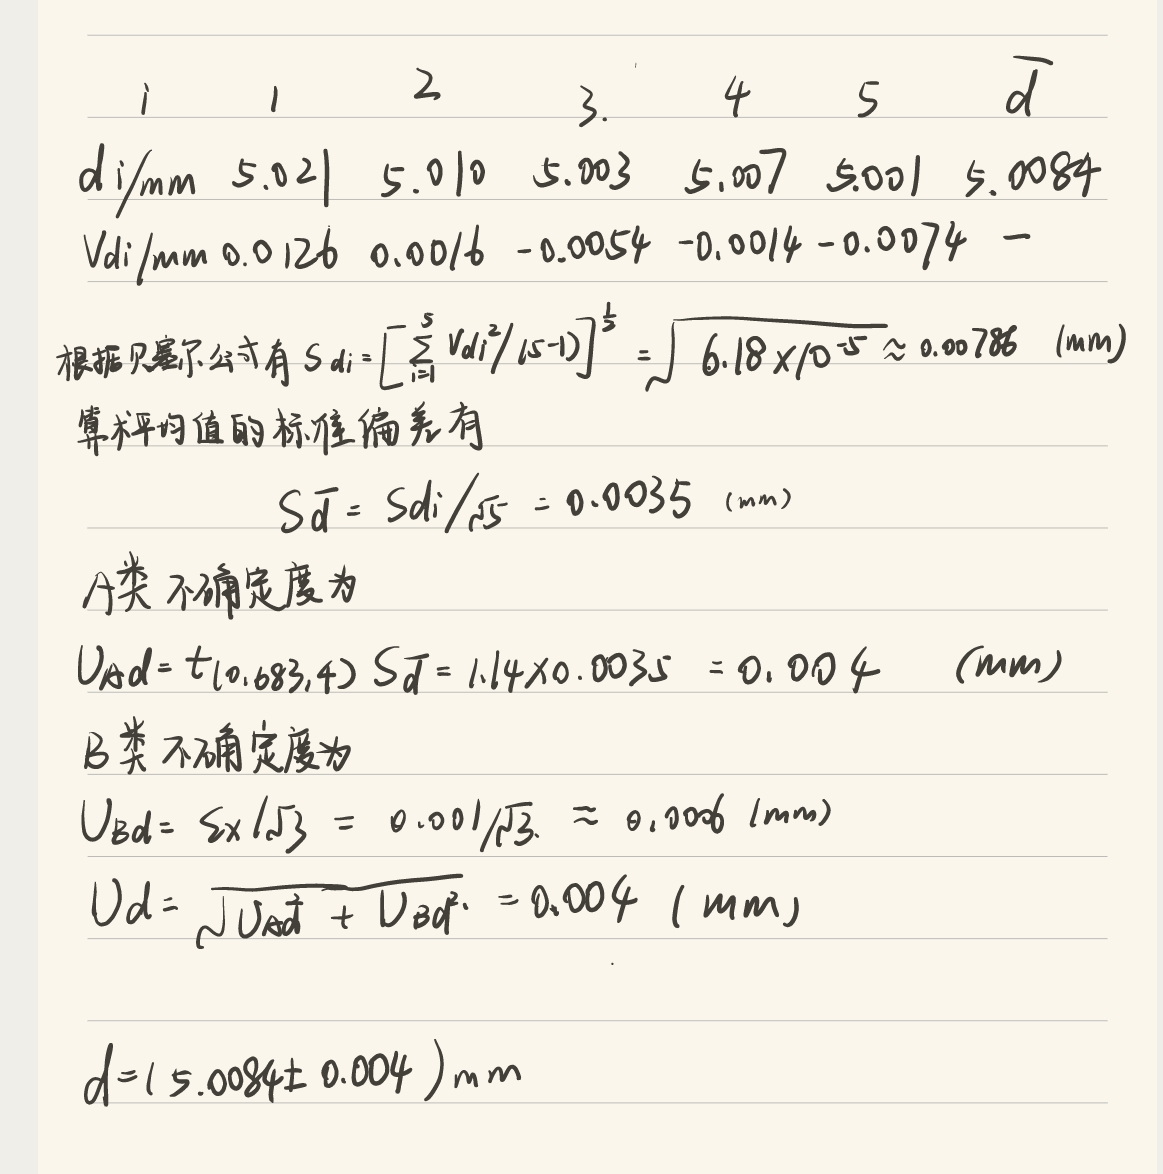 i 1 2 3. 4 5 d̅
di/mm 5.021 5.010 5.003 5.007 5.001 5.0084
Vdi/mm 0.0126 0.0016 -0.0054 -0.0014 -0.0074 —
根据贝塞尔公式有 Sdi=[∑_{i=1}^{5} Vdi²/(5-1)]^{1/2} = √(6.18×10⁻⁵) ≈ 0.00786 (mm)
算术平均值的标准偏差有
Sd̅ = Sdi/√5 = 0.0035 (mm)
A类不确定度为
UAd = t(0.683,4) Sd̅ = 1.14×0.0035 = 0.004 (mm)
B类不确定度为
UBd = εx/√3 = 0.001/√3. ≈ 0.006 (mm)
Ud = √(UAd² + UBd²) = 0.004 (mm)
d=(5.0084± 0.004)mm